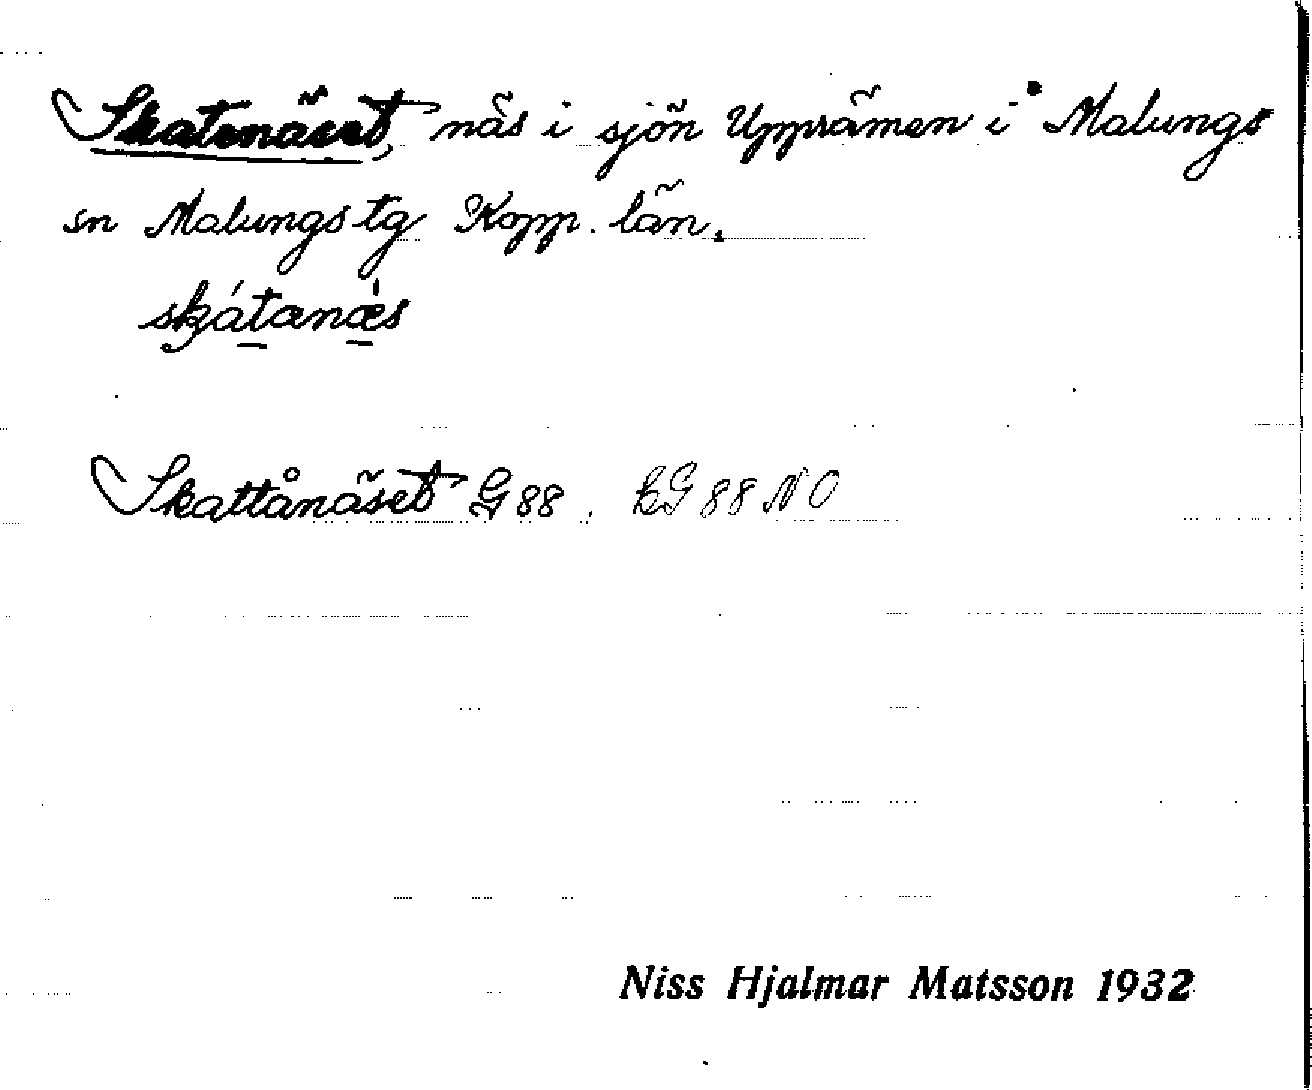 Skatenäset, näs i sjön Upprämen i Malungs
sn Malungs tg Kopp. län.
skátanæ̀s
Skattånäset G 88. EG 88 NO
Niss Hjalmar Matsson 1932